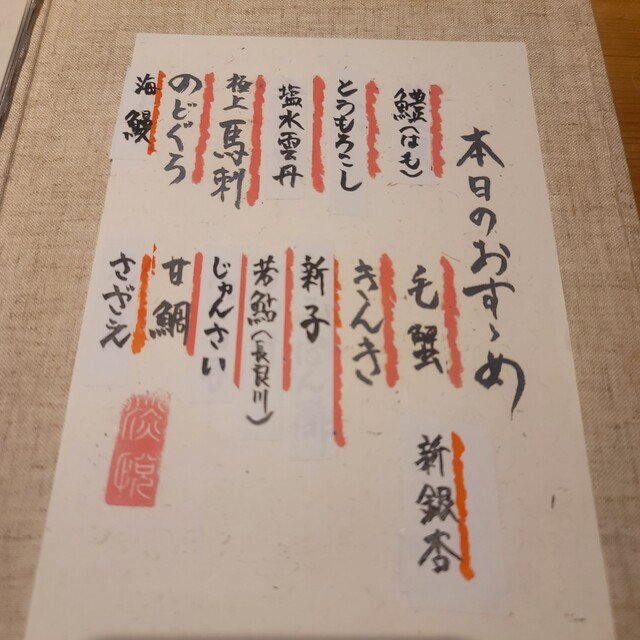 本日のおすゝめ
鱧(はも)
とうもろこし
塩水雲丹
極上馬刺
のどぐろ
海鰻
毛蟹
きんき
新子
若鮎(長良川)
じゅんさい
甘鯛
さざえ
新銀杏